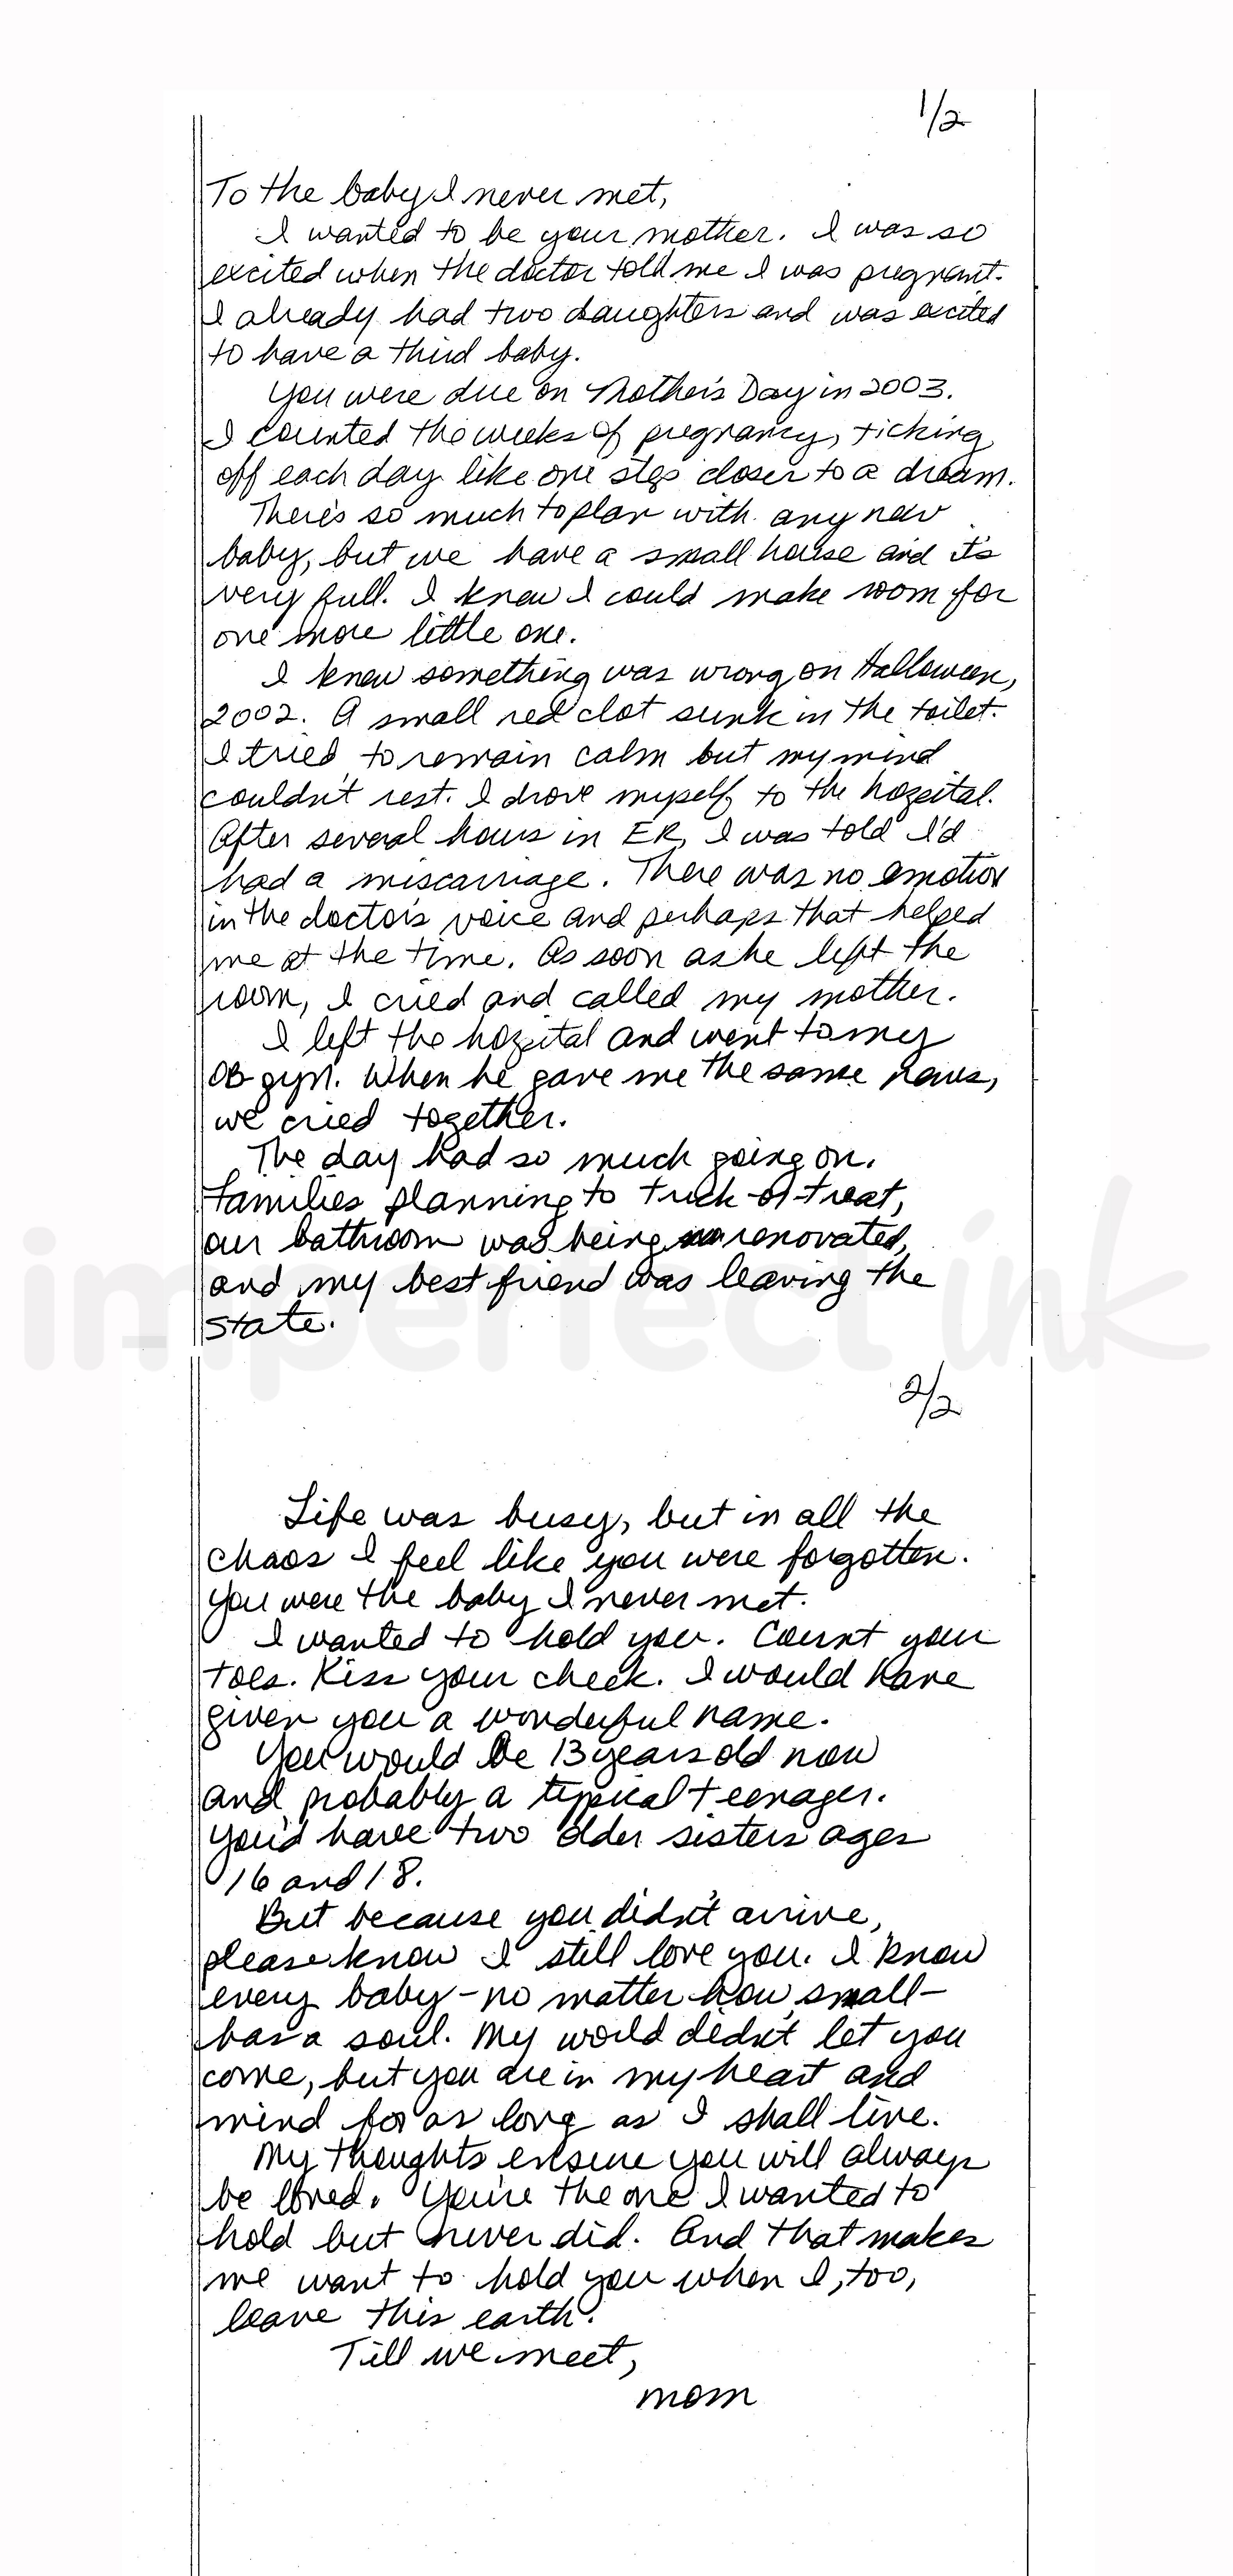 1/2
To the baby I never met,
I wanted to be your mother. I was so
excited when the doctor told me I was pregnant.
I already had two daughters and was excited
to have a third baby.
You were due on Mother's Day in 2003.
I counted the weeks of pregnancy, ticking
off each day like one step closer to a dream.
There's so much to plan with any new
baby, but we have a small house and it's
very full. I knew I could make room for
one more little one.
I knew something was wrong on Halloween,
2002. A small red clot sunk in the toilet.
I tried to remain calm but my mind
couldn't rest. I drove myself to the hospital.
After several hours in ER, I was told I'd
had a miscarriage. There was no emotion
in the doctor's voice and perhaps that helped
me at the time. As soon as he left the
room, I cried and called my mother.
I left the hospital and went to my
OB-gyn. When he gave me the same news,
we cried together.
The day had so much going on.
Families planning to trick-or-treat,
our bathroom was being renovated,
and my best friend was leaving the
state.
imperfect ink
2/2
Life was busy, but in all the
chaos I feel like you were forgotten.
You were the baby I never met.
I wanted to hold you. Count your
toes. Kiss your cheek. I would have
given you a wonderful name.
You would be 13 years old now
and probably a typical teenager.
You'd have two older sisters ages
16 and 18.
But because you didn't arrive,
please know I still love you. I know
every baby - no matter how small -
has a soul. My world didn't let you
come, but you are in my heart and
mind for as long as I shall live.
My thoughts ensure you will always
be loved. You're the one I wanted to
hold but never did. And that makes
me want to hold you when I, too,
leave this earth.
Till we meet,
mom